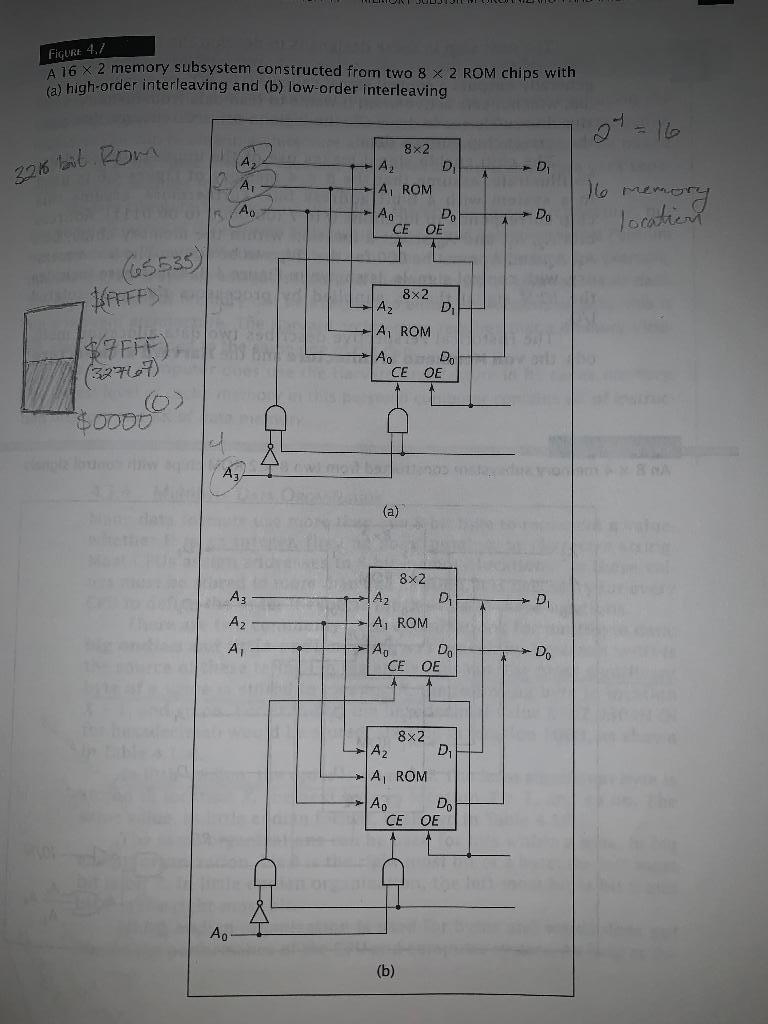 FIGURE 4.7
A 16 × 2 memory subsystem constructed from two 8 × 2 ROM chips with
(a) high-order interleaving and (b) low-order interleaving
2⁴ = 16
16 memory
location
bit Rom
(65535)
$(FFFF)
$7FFF)
(32767)
(0)
$0000
8×2
A₂ A₂ D₁ D₁
A₁ A₁ ROM
A₀ A₀ D₀ D₀
CE OE
8×2
A₂ D₁
A₁ ROM
A₀ D₀
CE OE
4
A₃
(a)
8×2
A₃ A₂ D₁ D₁
A₂ A₁ ROM
A₁ A₀ D₀ D₀
CE OE
8×2
A₂ D₁
A₁ ROM
A₀ D₀
CE OE
A₀
(b)